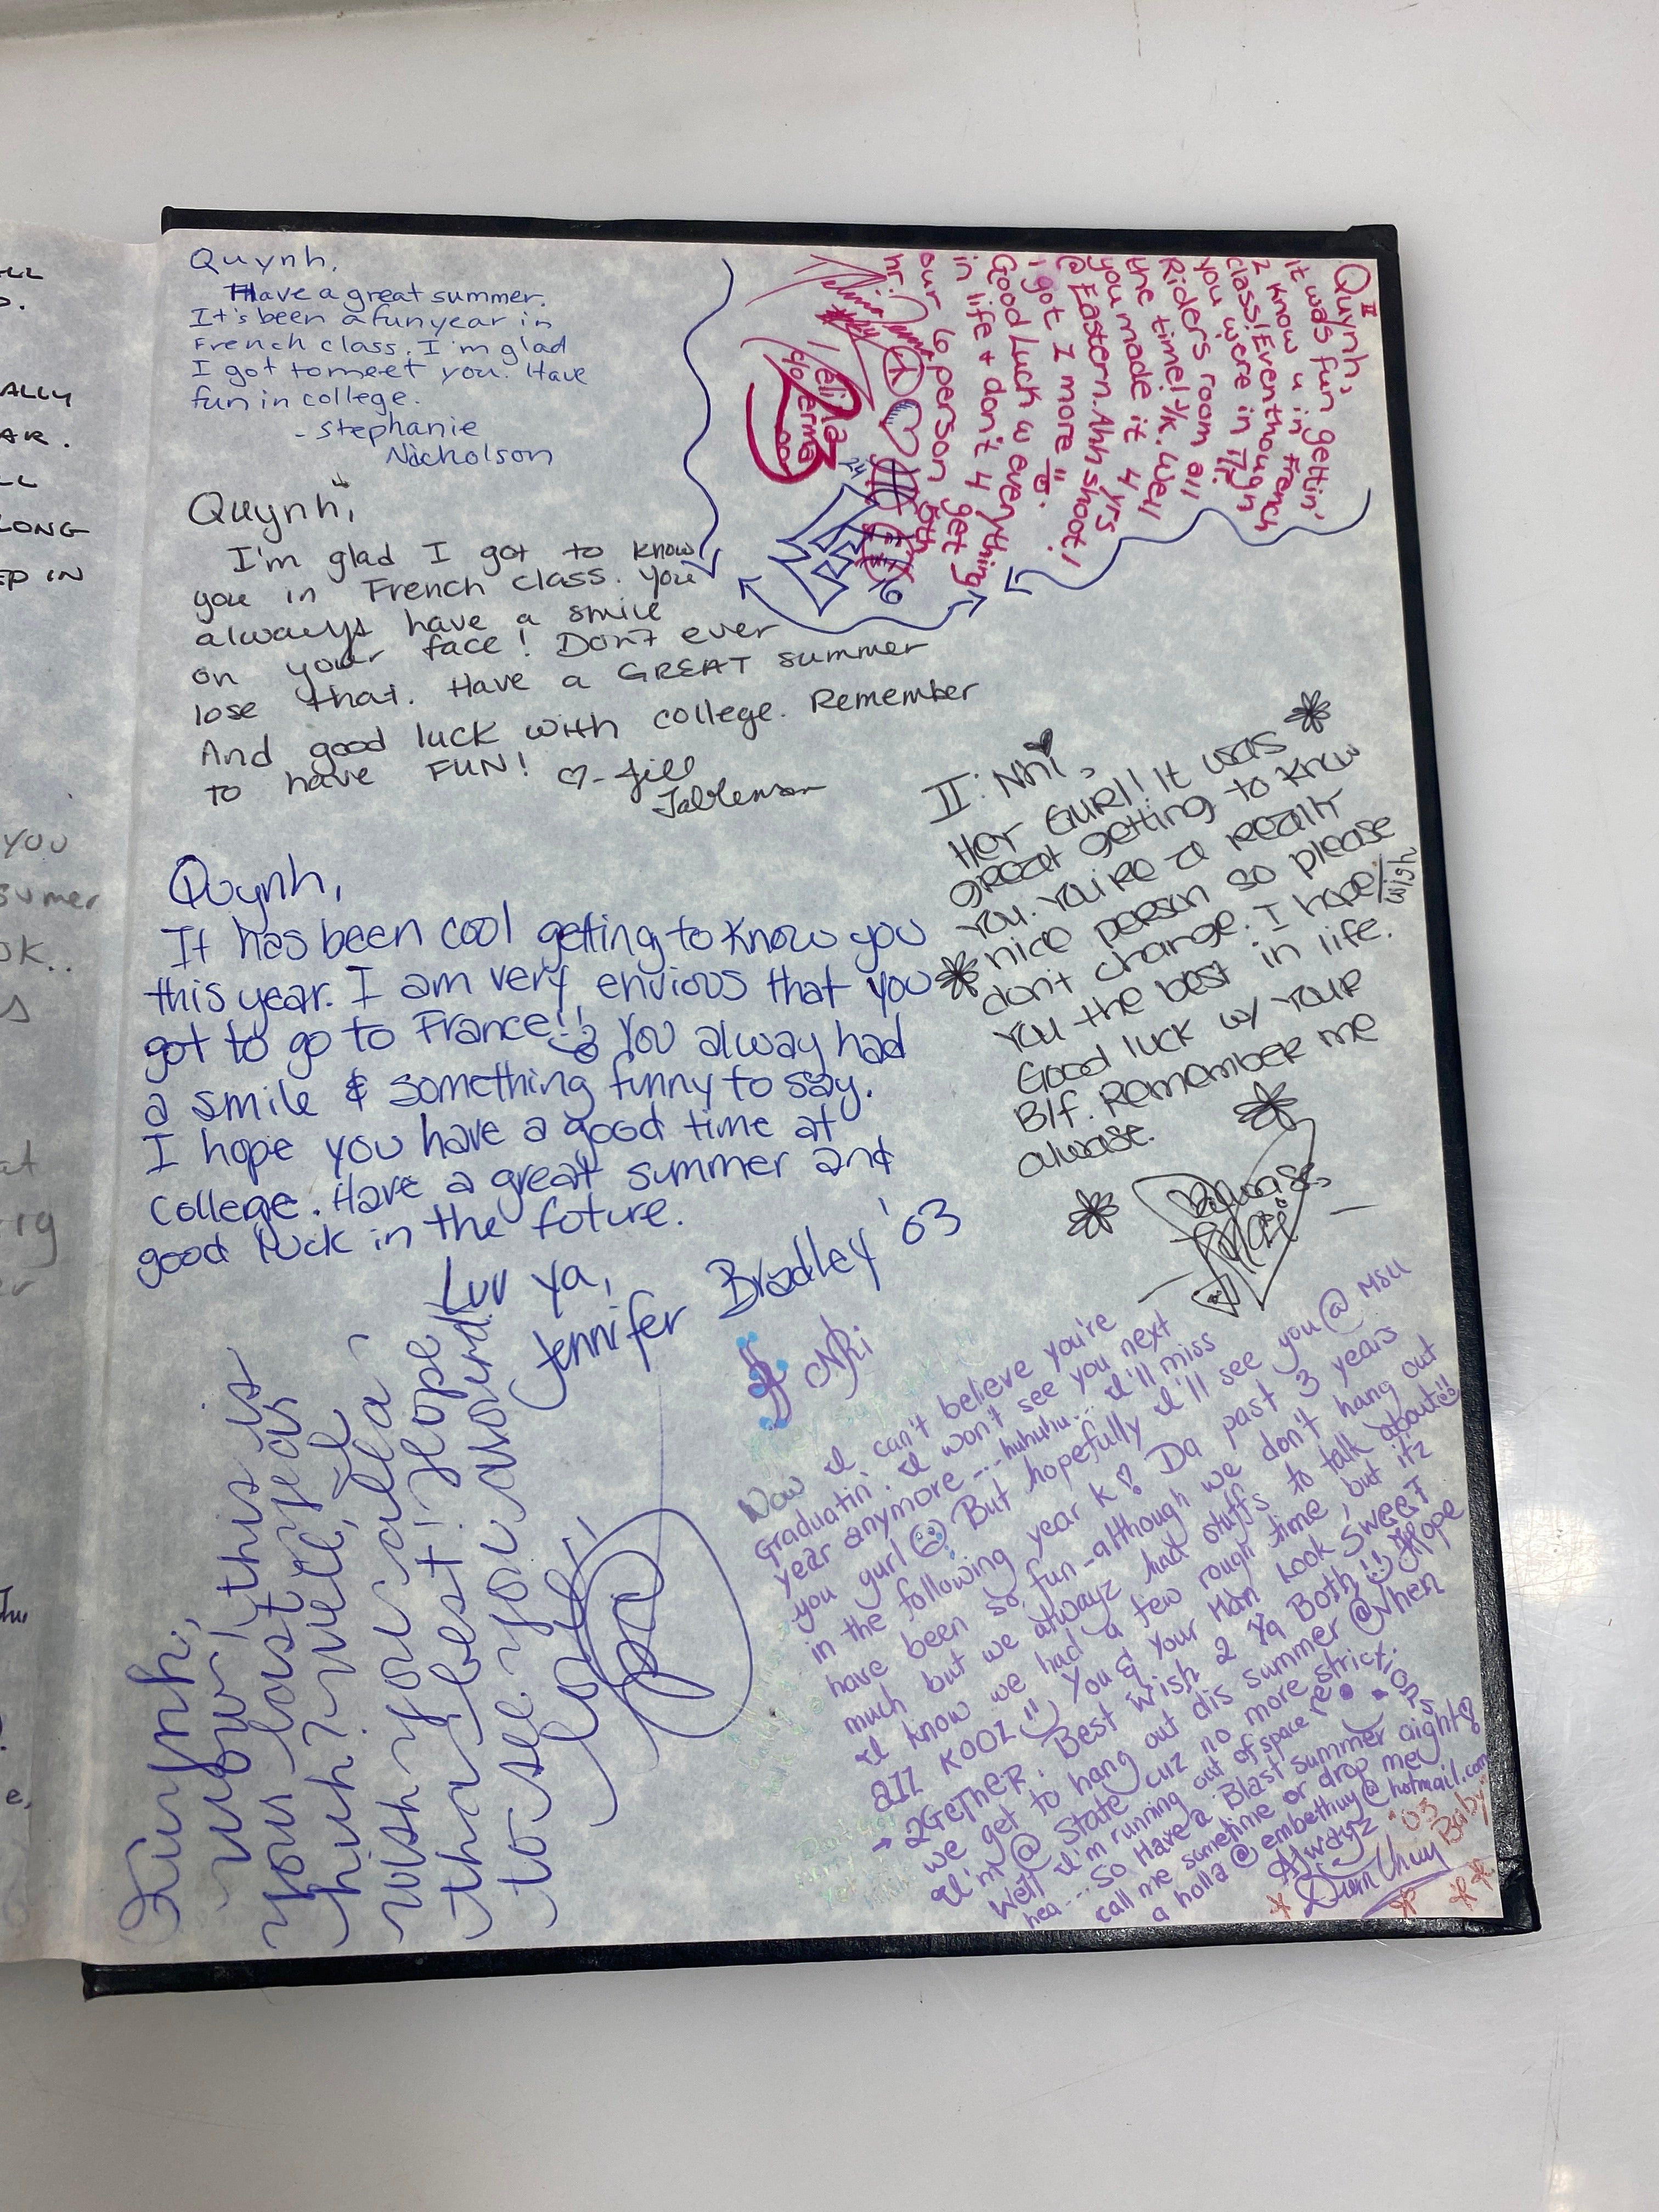 Quynh,
Have a great summer.
It's been a fun year in
French class. I'm glad
I got to meet you. Have
fun in college.
- Stephanie
Nicholson
Quynh,
I'm glad I got to know
you in French class. You
always have a smile
on your face! Don't ever
lose that. Have a GREAT summer
And good luck with college. Remember
to have FUN! ♡- Jill
Quynh,
It was fun gettin'
2 know u in French
class! Even though
you were in
Riders room all
the time! J/K. Well
you made it 4 yrs
@ Eastern. Ahh shoot!
I got 1 more
Good Luck w everything
in life + don't 4 get
our 6 person 5th
hr.!
II: Nhi,
Hey Gurl! It was
great getting to know
you. You're a really
nice person so please
don't change. I hope/wish
you the best in life.
Good luck w/ your
B/f. Remember me
alwase.
Quynh,
It has been cool getting to know you
this year. I am very envious that you
got to go to France!! You alway had
a smile & something funny to say.
I hope you have a good time at
College. Have a great summer and
good luck in the future.
Luv ya,
Jennifer Bradley '03
Quynh,
wow, this is
your last year
huh? well, I'll
wish you all a
tha best! Hope
to see you around.
Nhi
Wow I can't believe you're
graduatin'. I won't see you next
year anymore ...huhuhu... I'll miss
you gurl But hopefully I'll see you @ MSU
in the following year K! Da past 3 years
have been so fun - although we don't hang out
much but we alwayz had stuffs to talk about
I know we had a few rough time, but itz
all KOOZ You & Your Man Look SWEET
→ 2GETHER. Best Wish 2 Ya Both Hope
we get to hang out dis summer @ when
I'm @ State cuz no more strictions
Well I'm running out of space re
hea... So Have a Blast summer aight!
call me sometime or drop me
a holla @ embethuy@hotmail.com
Alwayz '03
Baby